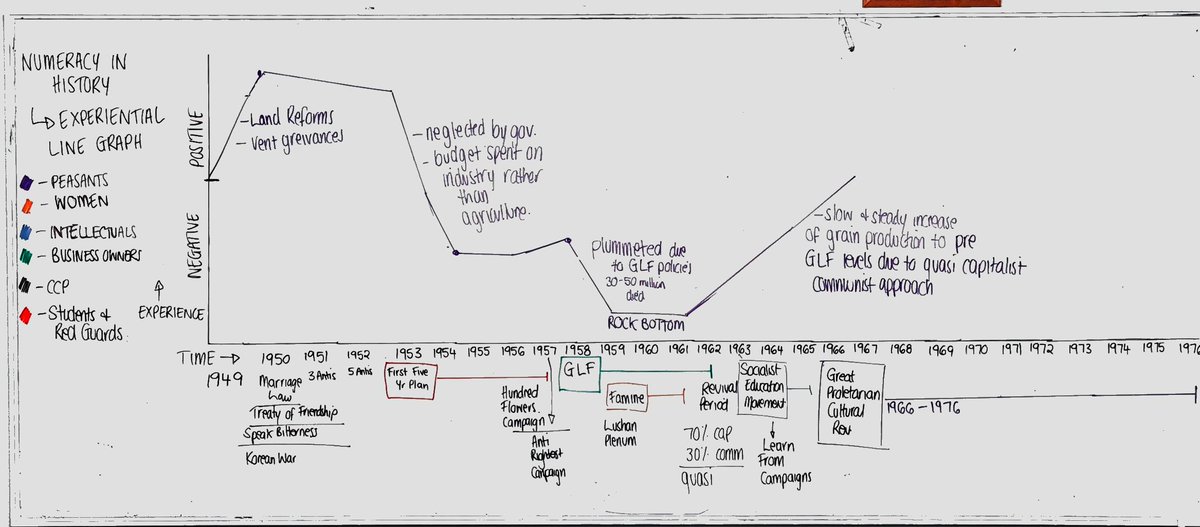 NUMERACY IN
HISTORY
↳ EXPERIENTIAL
LINE GRAPH
- PEASANTS
- WOMEN
- INTELLECTUALS
- BUSINESS OWNERS
- CCP
- Students &
Red Guards.
↑
EXPERIENCE
POSITIVE
NEGATIVE
- Land Reforms
- Vent greivances
- neglected by gov.
- budget spent on
industry rather
than
agriculture.
plummeted due
to GLF policies
30-50 million
died
ROCK BOTTOM
- slow & steady increase
of grain production to pre
GLF levels due to quasi capitalist
communist approach
TIME →
1949 1950 1951 1952 1953 1954 1955 1956 1957 1958 1959 1960 1961 1962 1963 1964 1965 1966 1967 1968 1969 1970 1971 1972 1973 1974 1975 1976
Marriage
Law
Treaty of Friendship
Speak Bitterness
Korean War
3 Antis
5 Antis
First Five
Yr Plan
Hundred
Flowers
Campaign
Anti
Rightest
Campaign
GLF
Famine
Lushan
Plenum
Revival
Period
70% cap
30% comm
quasi
Socialist
Education
Movement
Learn
From
Campaigns
Great
Proletarian
Cultural
Rev
1966 - 1976